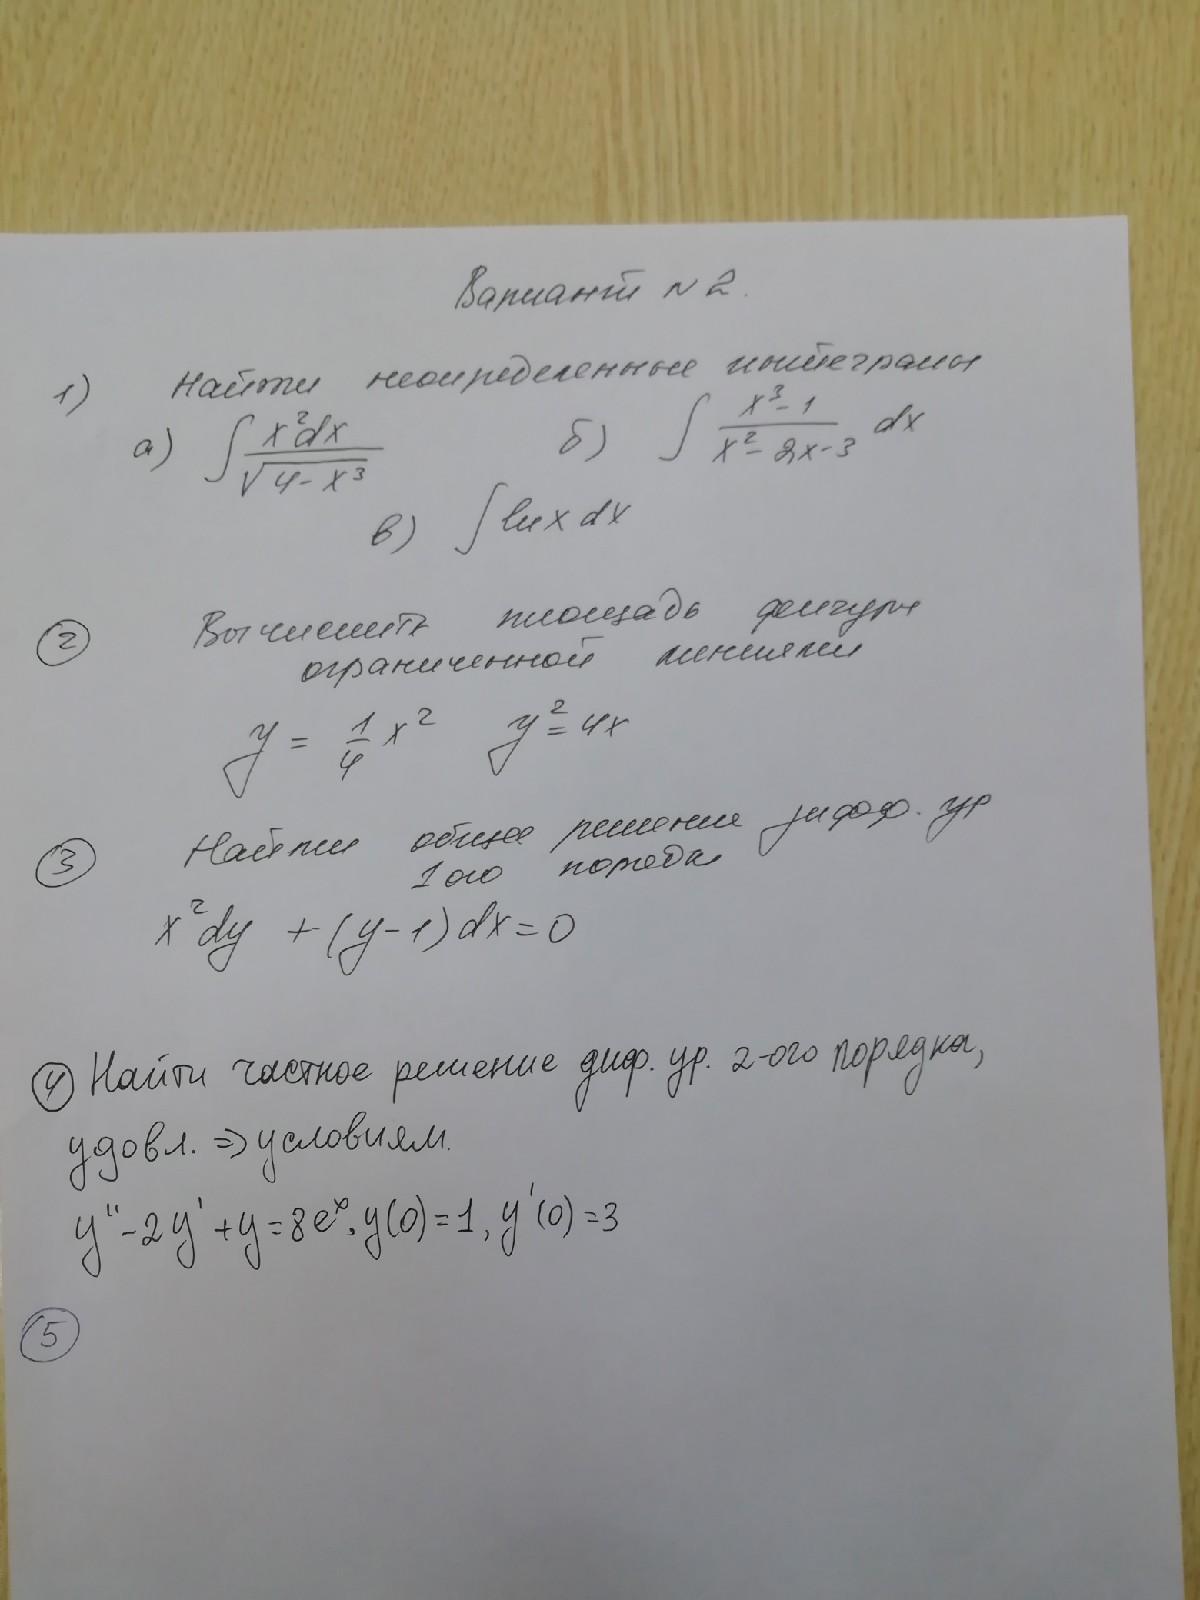 Вариант N2.
1) Найти неопределенные интегралы
а) ∫ x²dx / √(4-x³) б) ∫ (x³-1) / (x²-2x-3) dx
в) ∫ lnx dx
2 Вычислить площадь фигуры
ограниченной линиями
y = 1/4 x² y² = 4x
3 Найти общее решение дифф. ур
1ого порядка
x²dy + (y-1)dx = 0
4 Найти частное решение диф. ур. 2-ого порядка,
удовл. => условиям.
y'' - 2y' + y = 8eˣ, y(0) = 1, y'(0) = 3
5